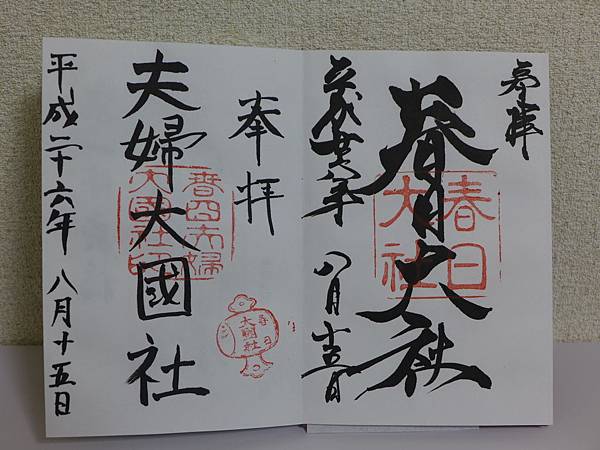 奉拝
春日大社
春日
大社
平成廿六年 八月十五日
奉拝
夫婦大國社
春日夫婦
大國社印
春日
大國社
平成二十六年 八月十五日